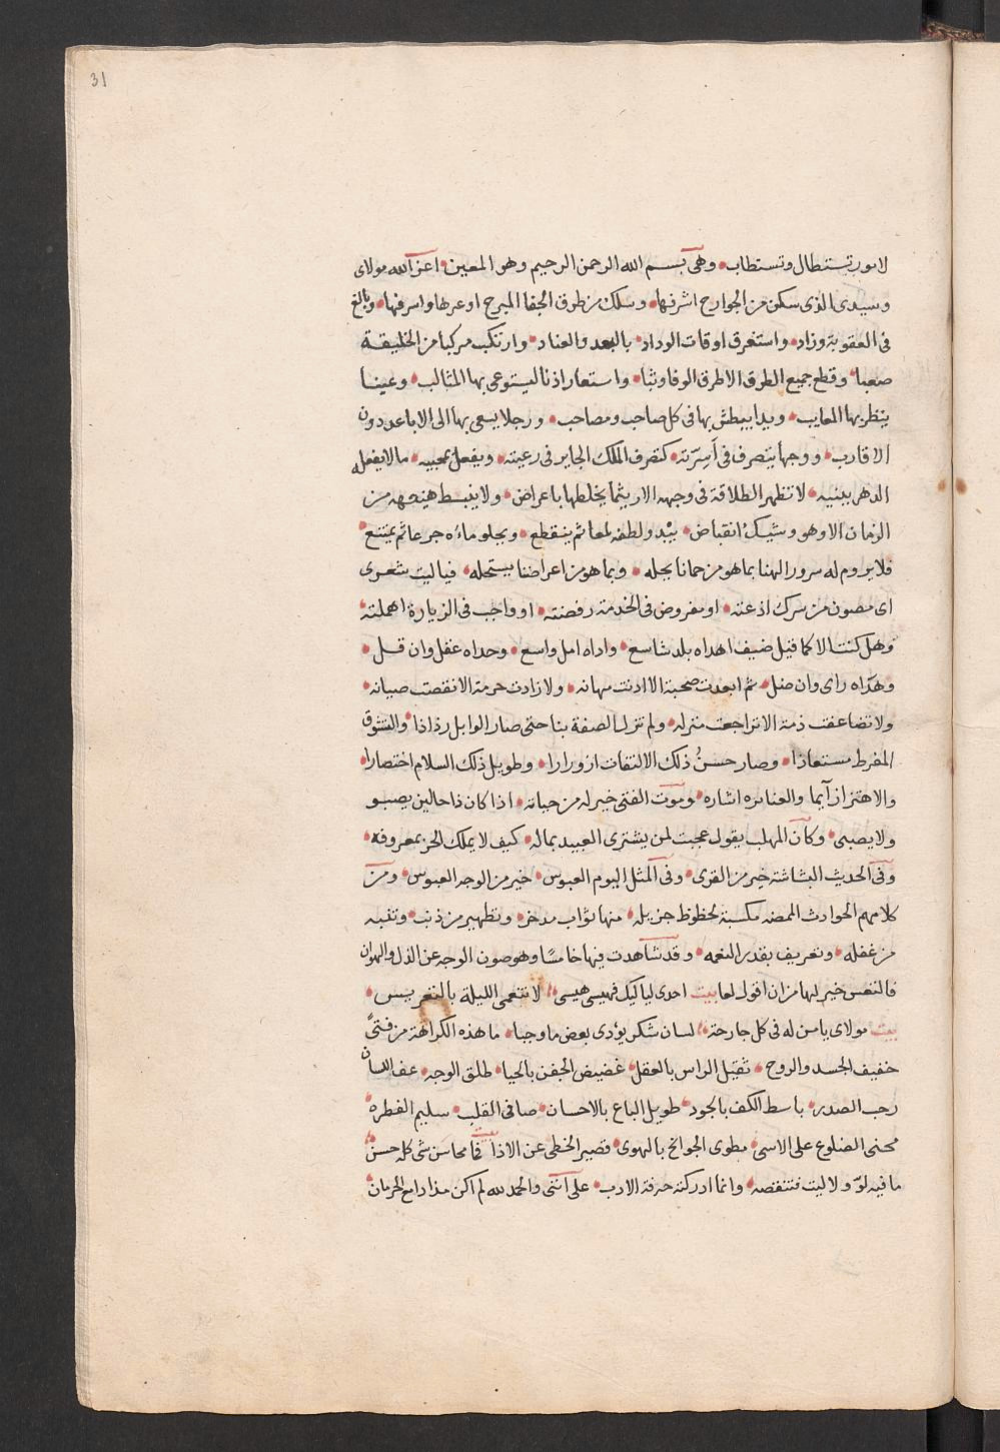 31
لامور تستطال وتستطاب وهى بسم الله الرحمن الرحيم وهو المعين اعز الله مولاى
وسيدى الذى سكن من الجوارح اشرفها وسلك من طرق الجفا المبرح اوعرها واسرفها وبالغ
فى العقوبة وزاد واستغرق اوقات الوداد بالبعد والعناد وارتكب مركبا من الخليقة
صعبا وقطع جميع الطرق الا طرق الوفا وثبا واستعار اذنا ليستوعى بها المثالب وعينا
ينظر بها المعايب ويدا يبطش بها فى كل صاحب ومصاحب ورجلا يسعى بها الى الاباعد دون
الاقارب ووجها يتصرف فى اسرته كتصرف الملك الجاير فى رعيته ويفعل بمحبيه ما لا يفعله
الدهر ببنيه لا تظهر الطلاقة فى وجهه الا ريثما يخلطها باعراض ولا ينبسط هنيهه من
الزمان الا وهو وشيك انقباض يبد ولطفه لمعا ثم ينقطع ويحلو ماءه جرعا ثم يمتنع
فلا يروم له سرور الهنا بما هو من حمانا يحله وبما هو من اعراضنا يستحله فياليت شعرى
اى مصون من سرك اذعته او مفروض فى الخدمة رفضته او واجب فى الزيارة اهملته
وهل كنت الا كما قيل ضيف اهداه بلد شاسع واداه امل واسع وحداه عقل وان قل
وهداه راى وان ضل ثم ابعدت صحبة الا ادنت مهانه ولا زادت حرمة الا نقصت صيانه
ولا تضاعفت ذمة الا تراجعت منزله ولم تزل الصفة بنا حتى صار الوابل رذاذا والتشوق
المفرط مستعاذا وصار حسن ذلك الالتفات ازورارا وطويل ذلك السلام اختصارا
والاهتزاز آيما والعناىره اشاره وموت الفتى خير له من حياته اذا كان ذا حالين يصبو
ولا يصبى وكان المهلب يقول عجبت لمن يشترى العبيد بماله كيف لا يملك الحر بمعروفه
وفى الحديث البشاشة خير من القرى وفى المثل اليوم العبوس خير من الوجه العبوس ومن
كلامهم الحوادث الممضه مكسبة لحظوظ جزيله منها ثواب مدخر وتطهير من ذنب وتنبه
من غفله وتعريف بقدر النعمه وقد شاهدت فيها خامسا وهو صون الوجه عن الذل والهوان
فالنفس خير لها من ان اقول لها بيت احدى لياليك فهيسى هيسى لا تنعمى الليلة بالتعريس
بيت مولاى يا من له فى كل جارحة لسان شكر يؤدى بعض ما وجبا ما هذه الكراهة من فتى
خفيف الجسد والروح ثقيل الراس بالعقل غضيض الجفن بالحيا طلق الوجه عف اللسان
رحب الصدر باسط الكف بالجود طويل الباع بالاحسان صافى القلب سليم الفطره
محنى الضلوع على الاسى مطوى الجوانح بالهوى قصير الخطى عن الاذا فما محاسن شى كله حسن
ما فيه لو ولا ليت فتنقصه وانما ادركته حرفة الادب على اننى والحمد لله لم اكن مذ اد امع الحرمان